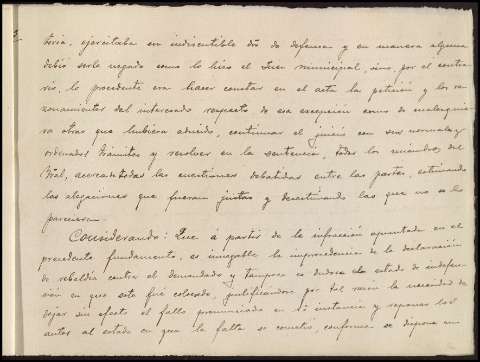 toria, ejercitaba un indiscutible dro de defensa y en manera alguna
debió serle negado como lo hizo el Juez municipal, sino, por el contra
rio, lo procedente era hacer constar en el acta la petición y los ra
zonamientos del interesado respecto de esa excepción como de cualesquie
ra otras que hubiera aducido, continuar el juicio con sus normales y
ordenados trámites y resolver en la sentencia, todos los miembros del
Tbal, acerca de todas las cuestiones debatidas entre las partes, estimando
las alegaciones que fueran justas y desestimando las que no se lo
parecieran.
Considerando: Que á partir de la infracción apuntada en el
precedente fundamento, es innegable la improcedencia de la declaración
de rebeldía contra el demandado y tampoco es dudoso el estado de indefen
sión en que este fué colocado, justificándose por tal razon la necesidad de
dejar sin efecto el fallo pronunciado en 1ª instancia y reponer los
autos al estado en que la falta se cometió, conforme se dispone en